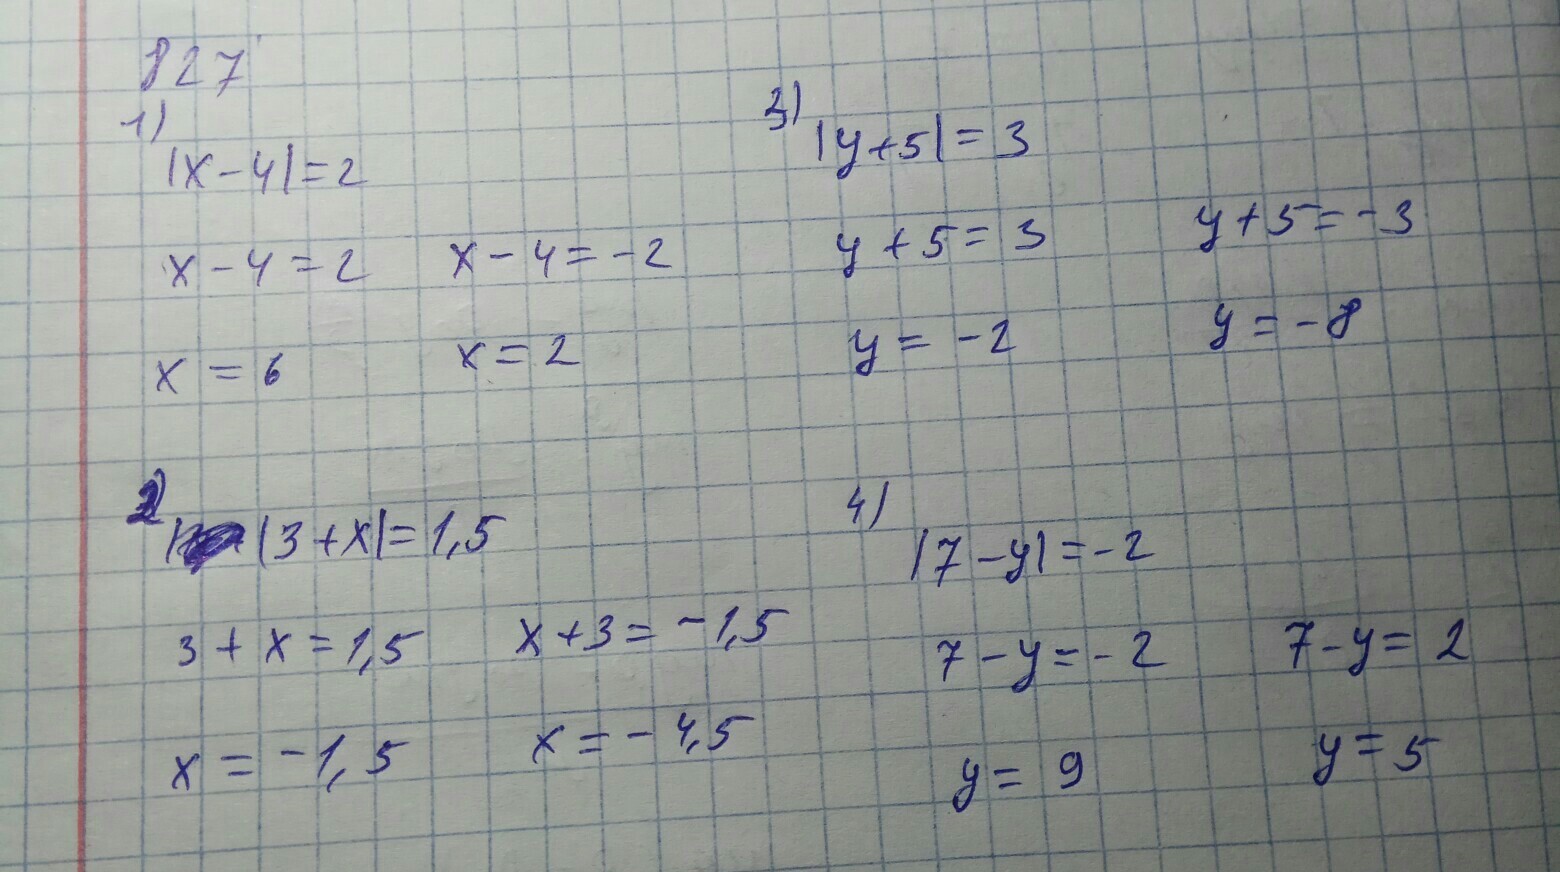 827
1)
|x-4|=2
x-4=2 x-4=-2
x=6 x=2
2
|3+x|=1,5
3+x=1,5 x+3=-1,5
x=-1,5 x=-4,5
3)
|y+5|=3
y+5=3 y+5=-3
y=-2 y=-8
4)
|7-y|=-2
7-y=-2 7-y=2
y=9 y=5